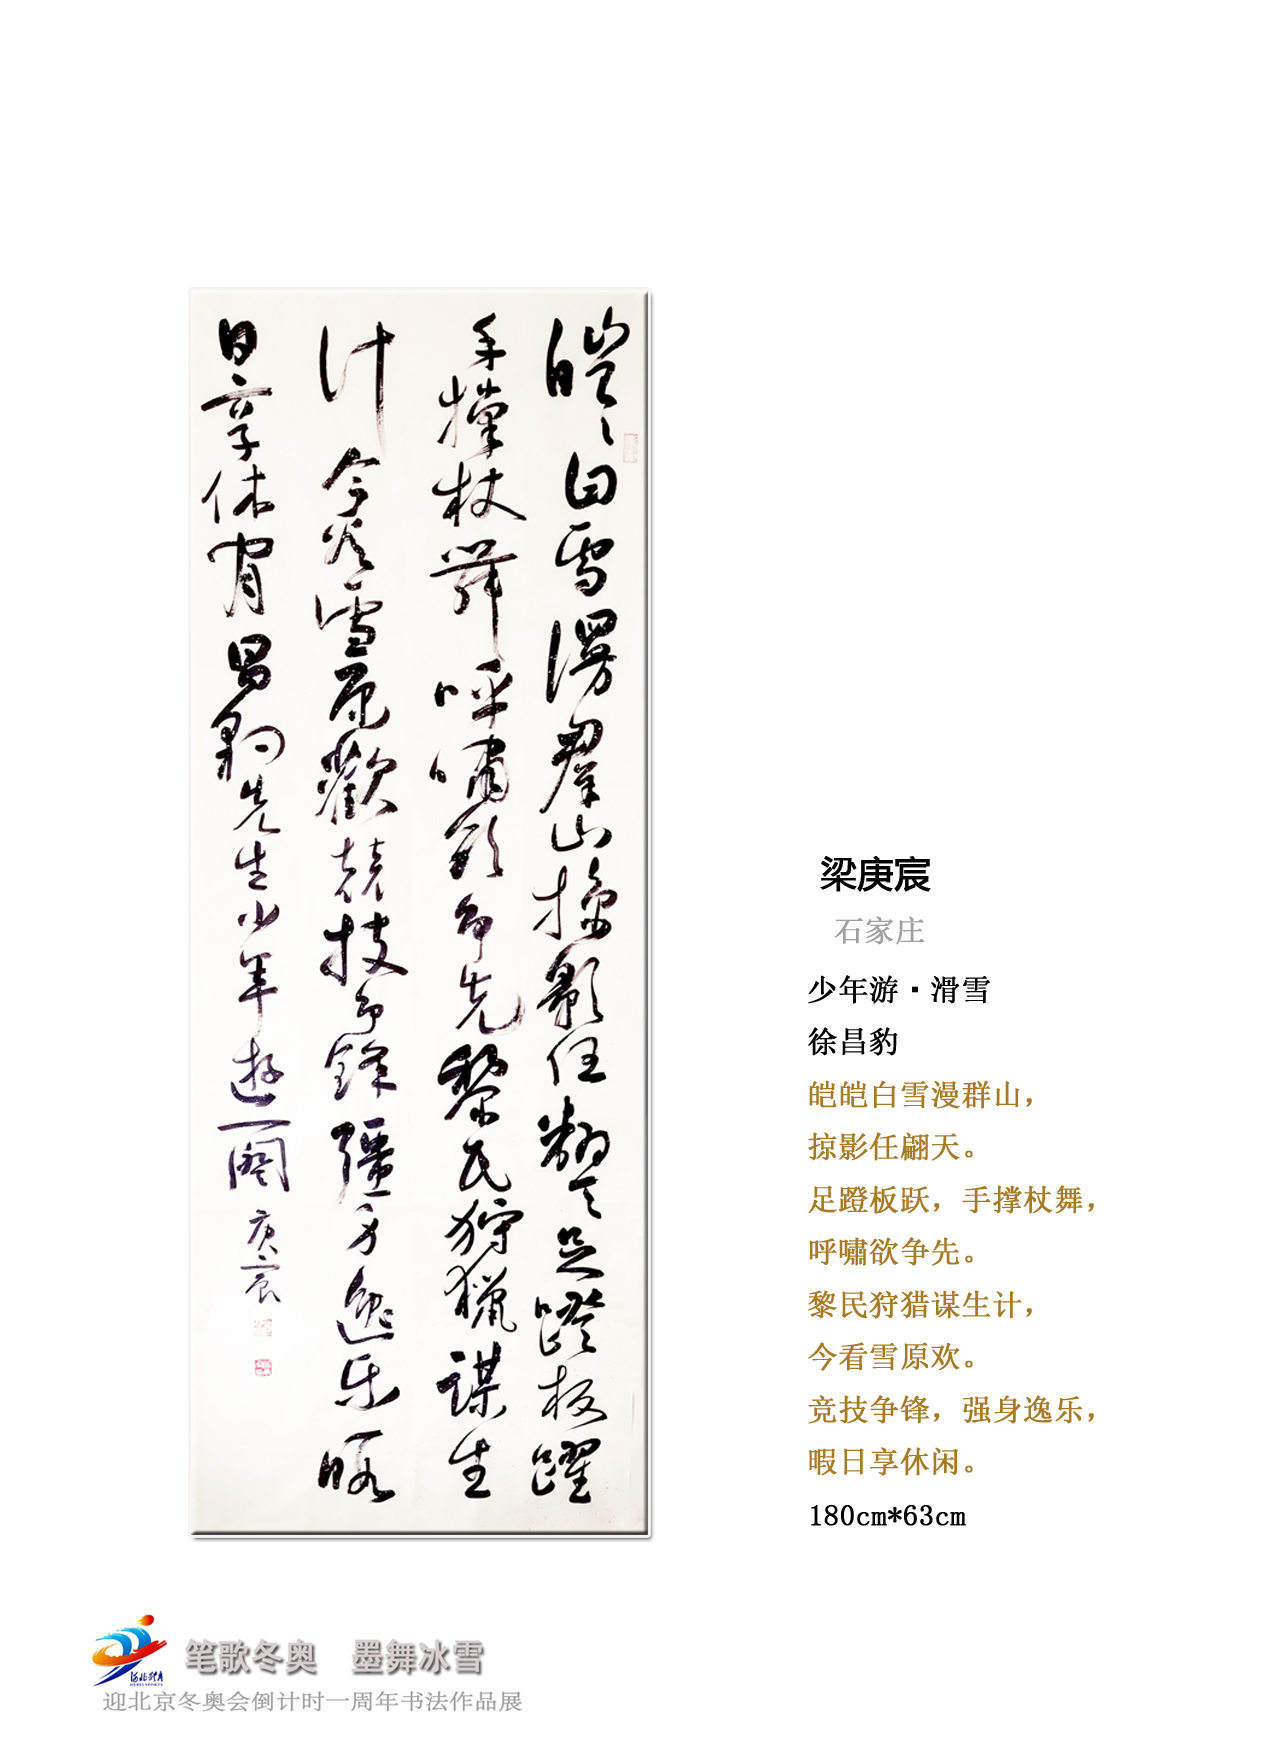 皚〻白雪漫群山掠影任翩天足蹬板躍
手撑杖舞呼嘯欲争先黎民狩獵謀生
计今看雪原歡競技争鋒強身逸乐暇
日享休闲昌豹先生少年遊一阕庚宸
梁庚宸
石家庄
少年游·滑雪
徐昌豹
皑皑白雪漫群山，
掠影任翩天。
足蹬板跃，手撑杖舞，
呼啸欲争先。
黎民狩猎谋生计，
今看雪原欢。
竞技争锋，强身逸乐，
暇日享休闲。
180cm*63cm
笔歌冬奥 墨舞冰雪
河北体育
HEBEI SPORTS
迎北京冬奥会倒计时一周年书法作品展